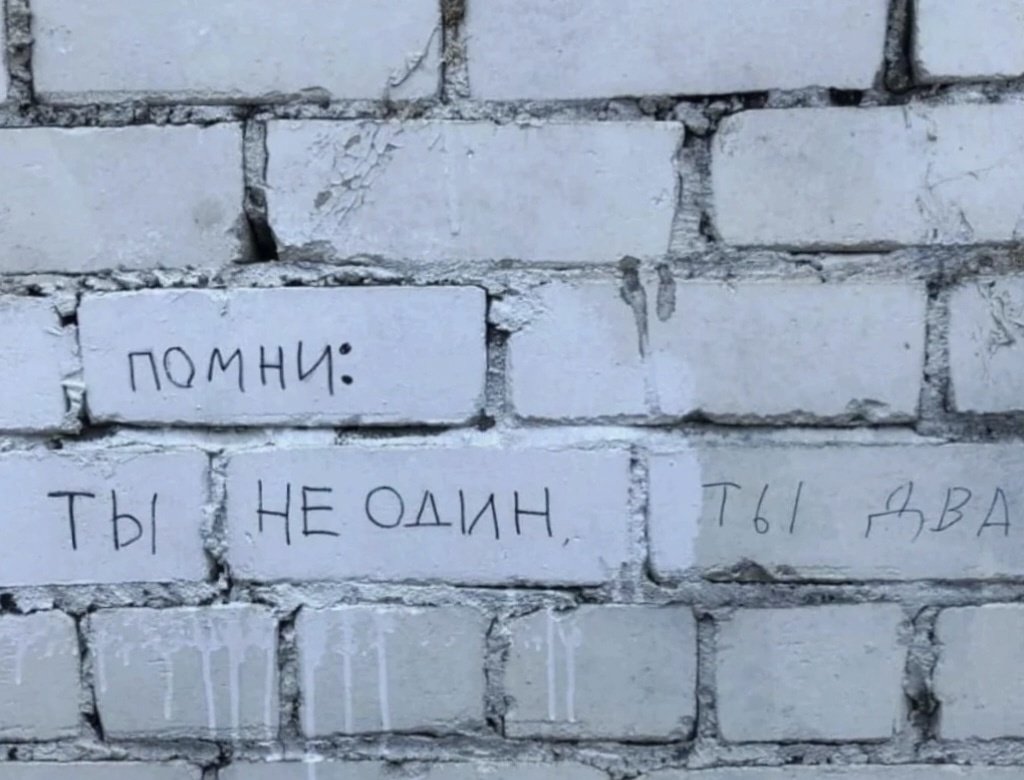 помни:
ты не один, ты два